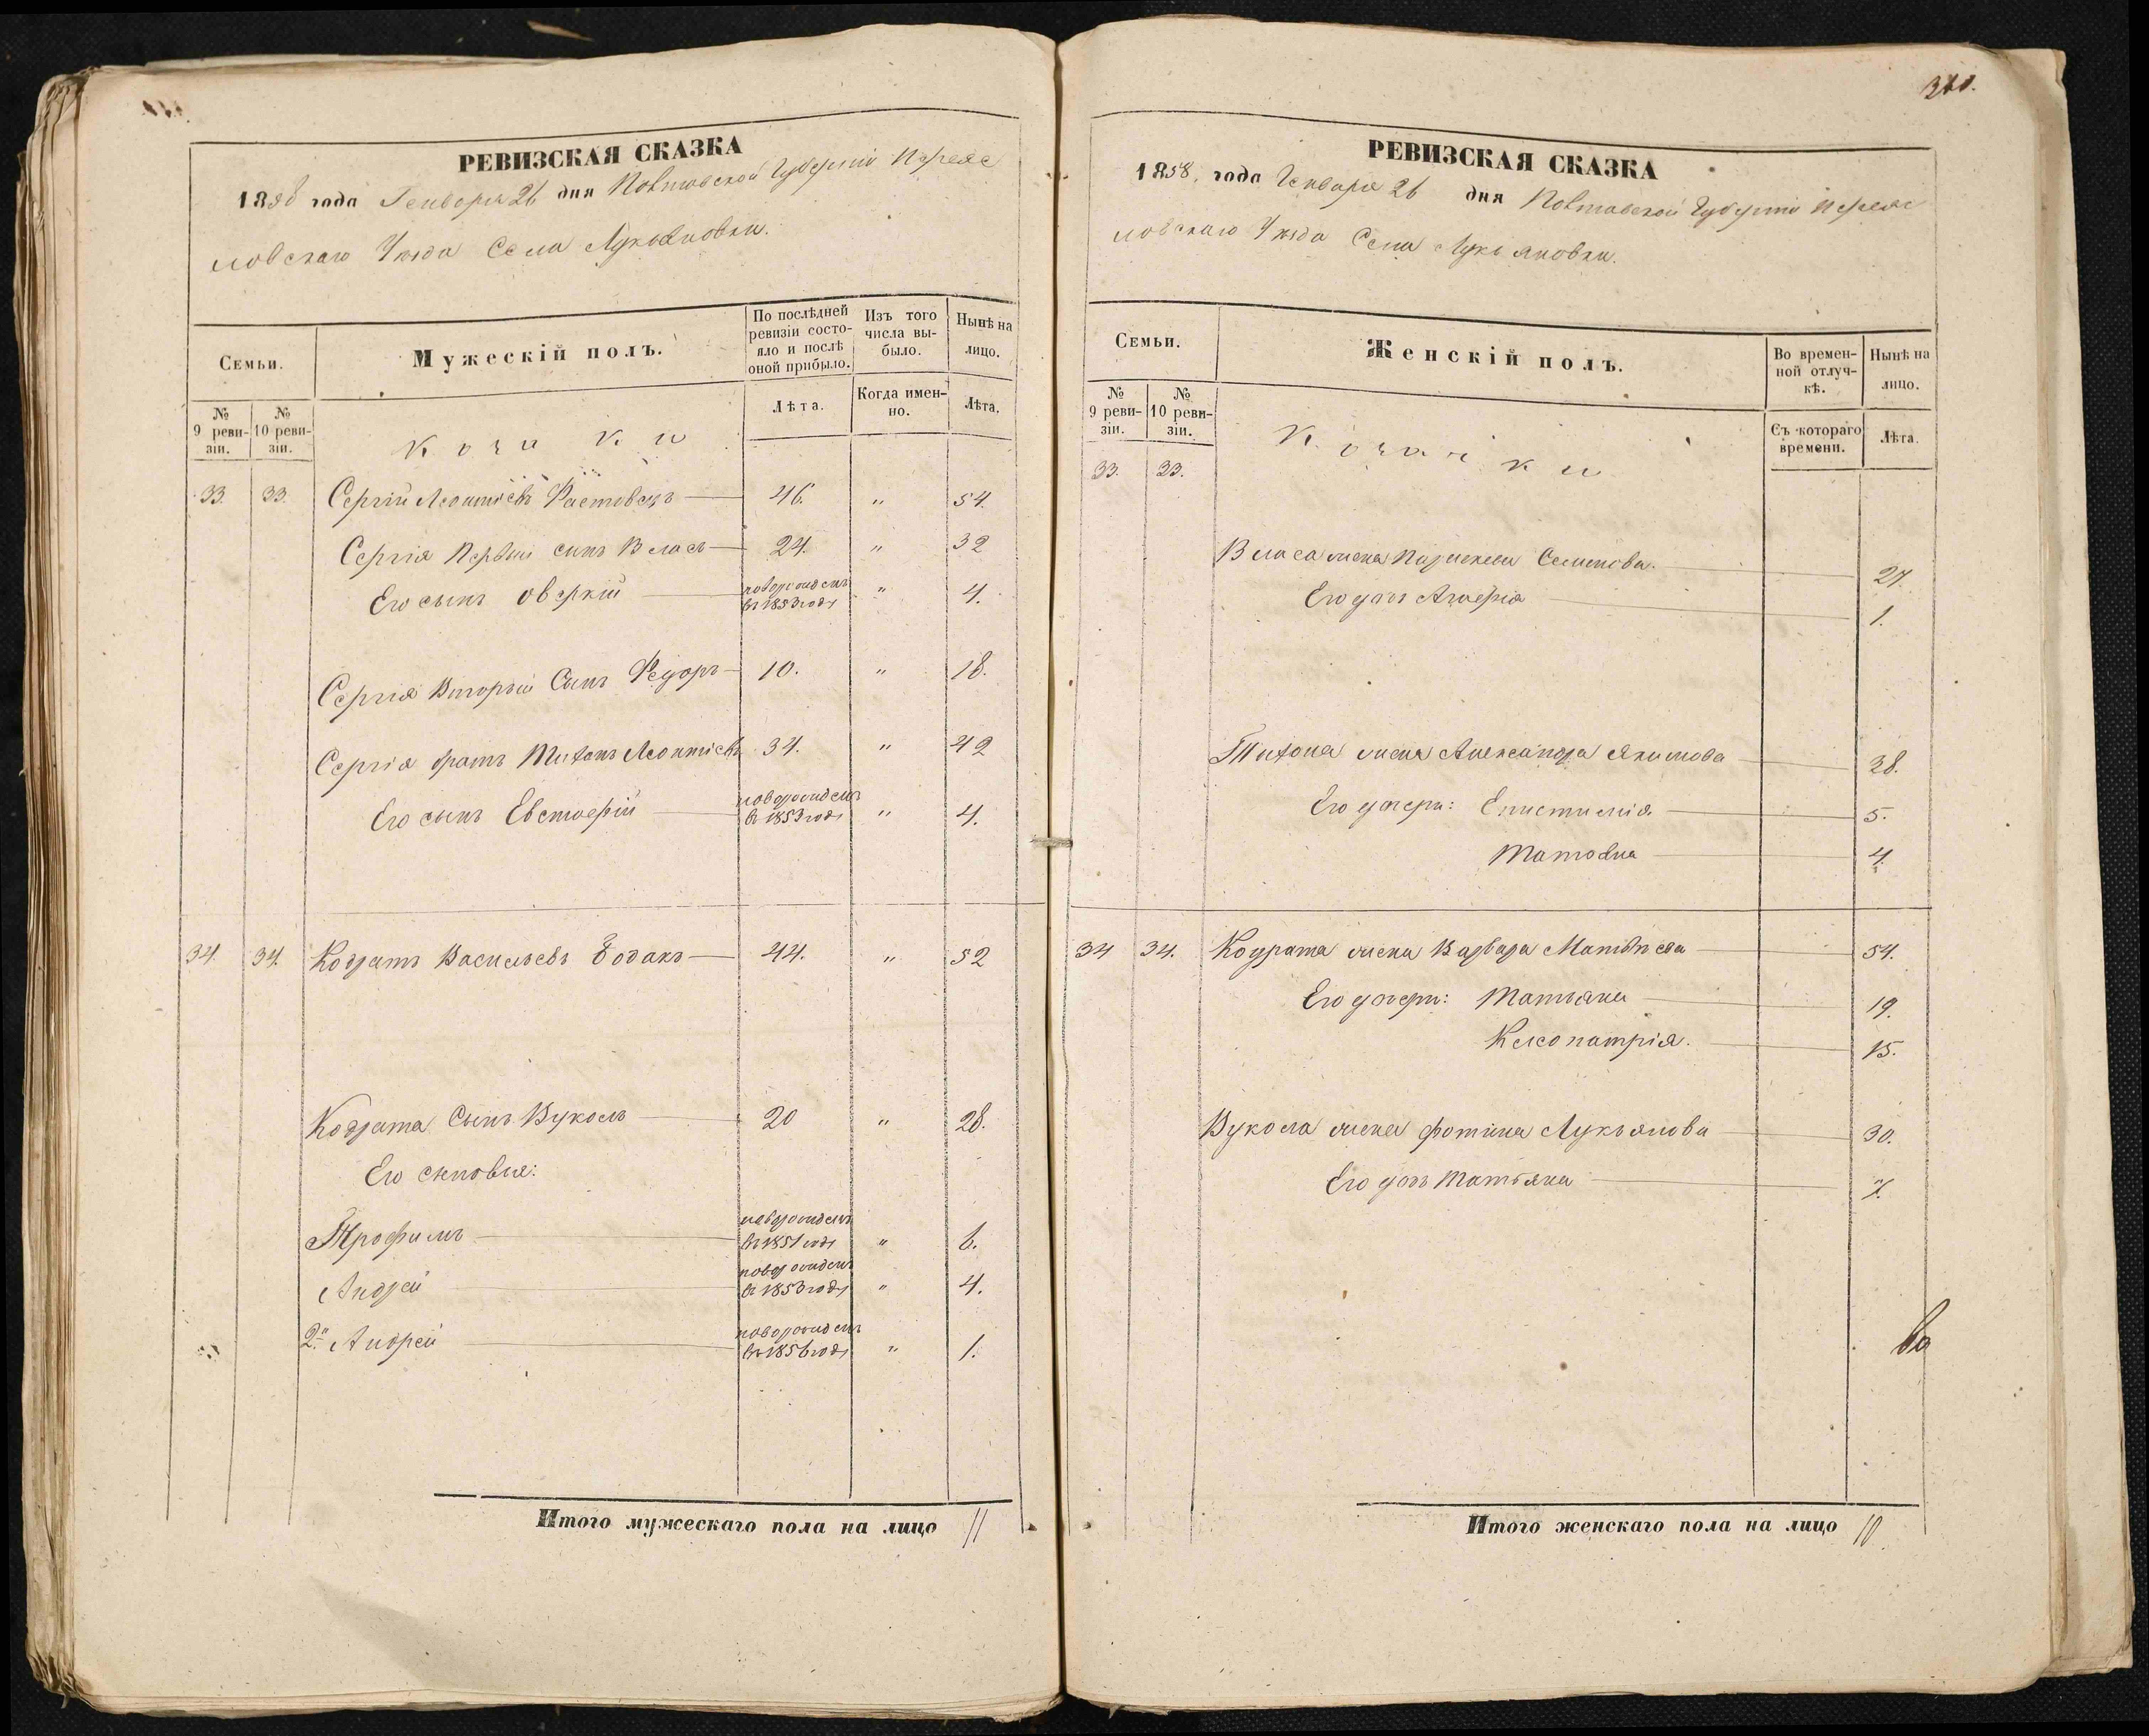 РЕВИЗСКАЯ СКАЗКА
1858 года Генваря 26 дня Полтавской Губерніи Переяс
ловскаго Уезда Села Лукьяновки.
Семьи.
Мужескій полъ.
По послѣдней ревизіи состояло и послѣ оной прибыло.
Изъ того числа выбыло.
Нынѣ на лицо.
№ 9 ревизіи.
№ 10 ревизіи.
Лѣта.
Когда именно.
Лѣта.
Козаки
33. 33. Сергій Леонтіевъ 46. " 54.
Сергія Первый сынъ Власъ 24. " 32
Его сынъ Оверкій новорожденъ въ 1853 годѣ " 4.
Сергія Вторый Сынъ Федоръ 10. " 18.
Сергія братъ Тихонъ Леонтіевъ 34. " 42
Его сынъ Евстафій новорожденъ въ 1853 годѣ " 4.
34. 34. Кодратъ Васильевъ Бодакъ 44. " 52
Кодрата Сынъ Вуколъ 20 " 28.
Его сыновья:
Трофимъ новорожденъ въ 1851 годѣ " 6.
Андрей новорожденъ въ 1853 годѣ " 4.
2й Андрей новорожденъ въ 1856 годѣ " 1.
Итого мужескаго пола на лицо 11
РЕВИЗСКАЯ СКАЗКА
1858, года Генваря 26 дня Полтавской Губерніи Переяс
ловскаго Уезда Села Лукьяновки.
Семьи.
Женскій полъ.
Во временной отлучкѣ.
Нынѣ на лицо.
№ 9 ревизіи.
№ 10 ревизіи.
Съ котораго времени.
Лѣта.
Козачки
33. 33.
Власа жена Параскева 27.
Его дочь 1.
Тихона жена Александра Якимова 38.
Его дочери: Епистимія 5.
Матрона 4.
34 34. Кодрата жена Варвара Матвѣева 54.
Его дочери: Татьяна 19.
Клеопатрія. 15.
Вукола жена Фотина Лукьянова 30.
Его дочь Татьяна 7.
Итого женскаго пола на лицо 10